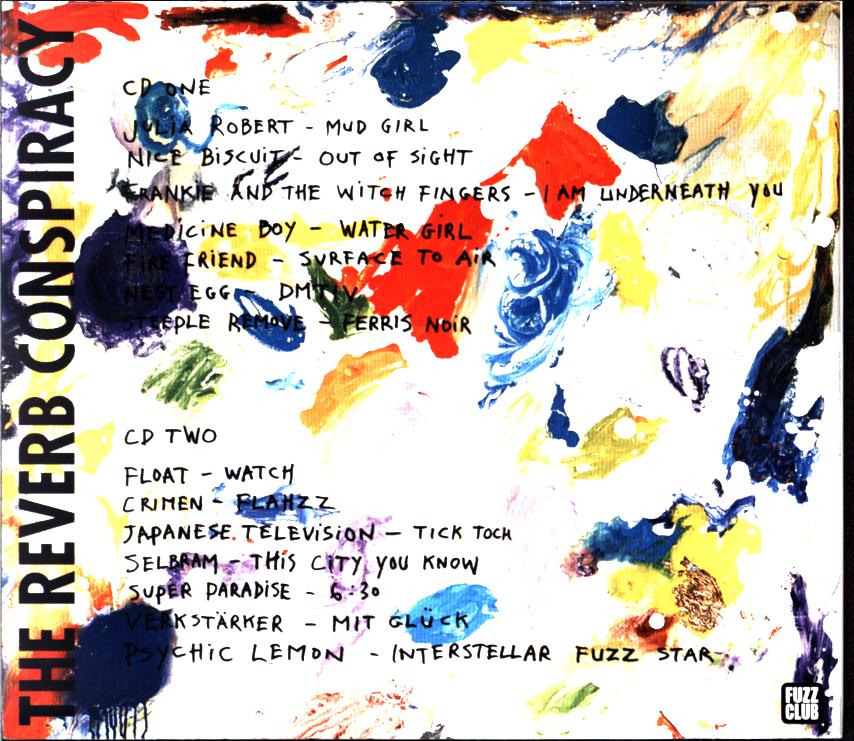 THE REVERB CONSPIRACY
CD ONE
JULIA ROBERT - MUD GIRL
NICE BISCUIT - OUT OF SIGHT
FRANKIE AND THE WITCH FINGERS - I AM UNDERNEATH YOU
MEDICINE BOY - WATER GIRL
FIRE FRIEND - SURFACE TO AIR
NEST EGG - DMTIV
STEEPLE REMOVE - FERRIS NOIR
CD TWO
FLOAT - WATCH
CRIMEN - FLAHZZ
JAPANESE TELEVISION - TICK TOCK
SELBRAM - THIS CITY YOU KNOW
SUPER PARADISE - 6:30
VERKSTÄRKER - MIT GLÜCK
PSYCHIC LEMON - INTERSTELLAR FUZZ STAR
FUZZ
CLUB